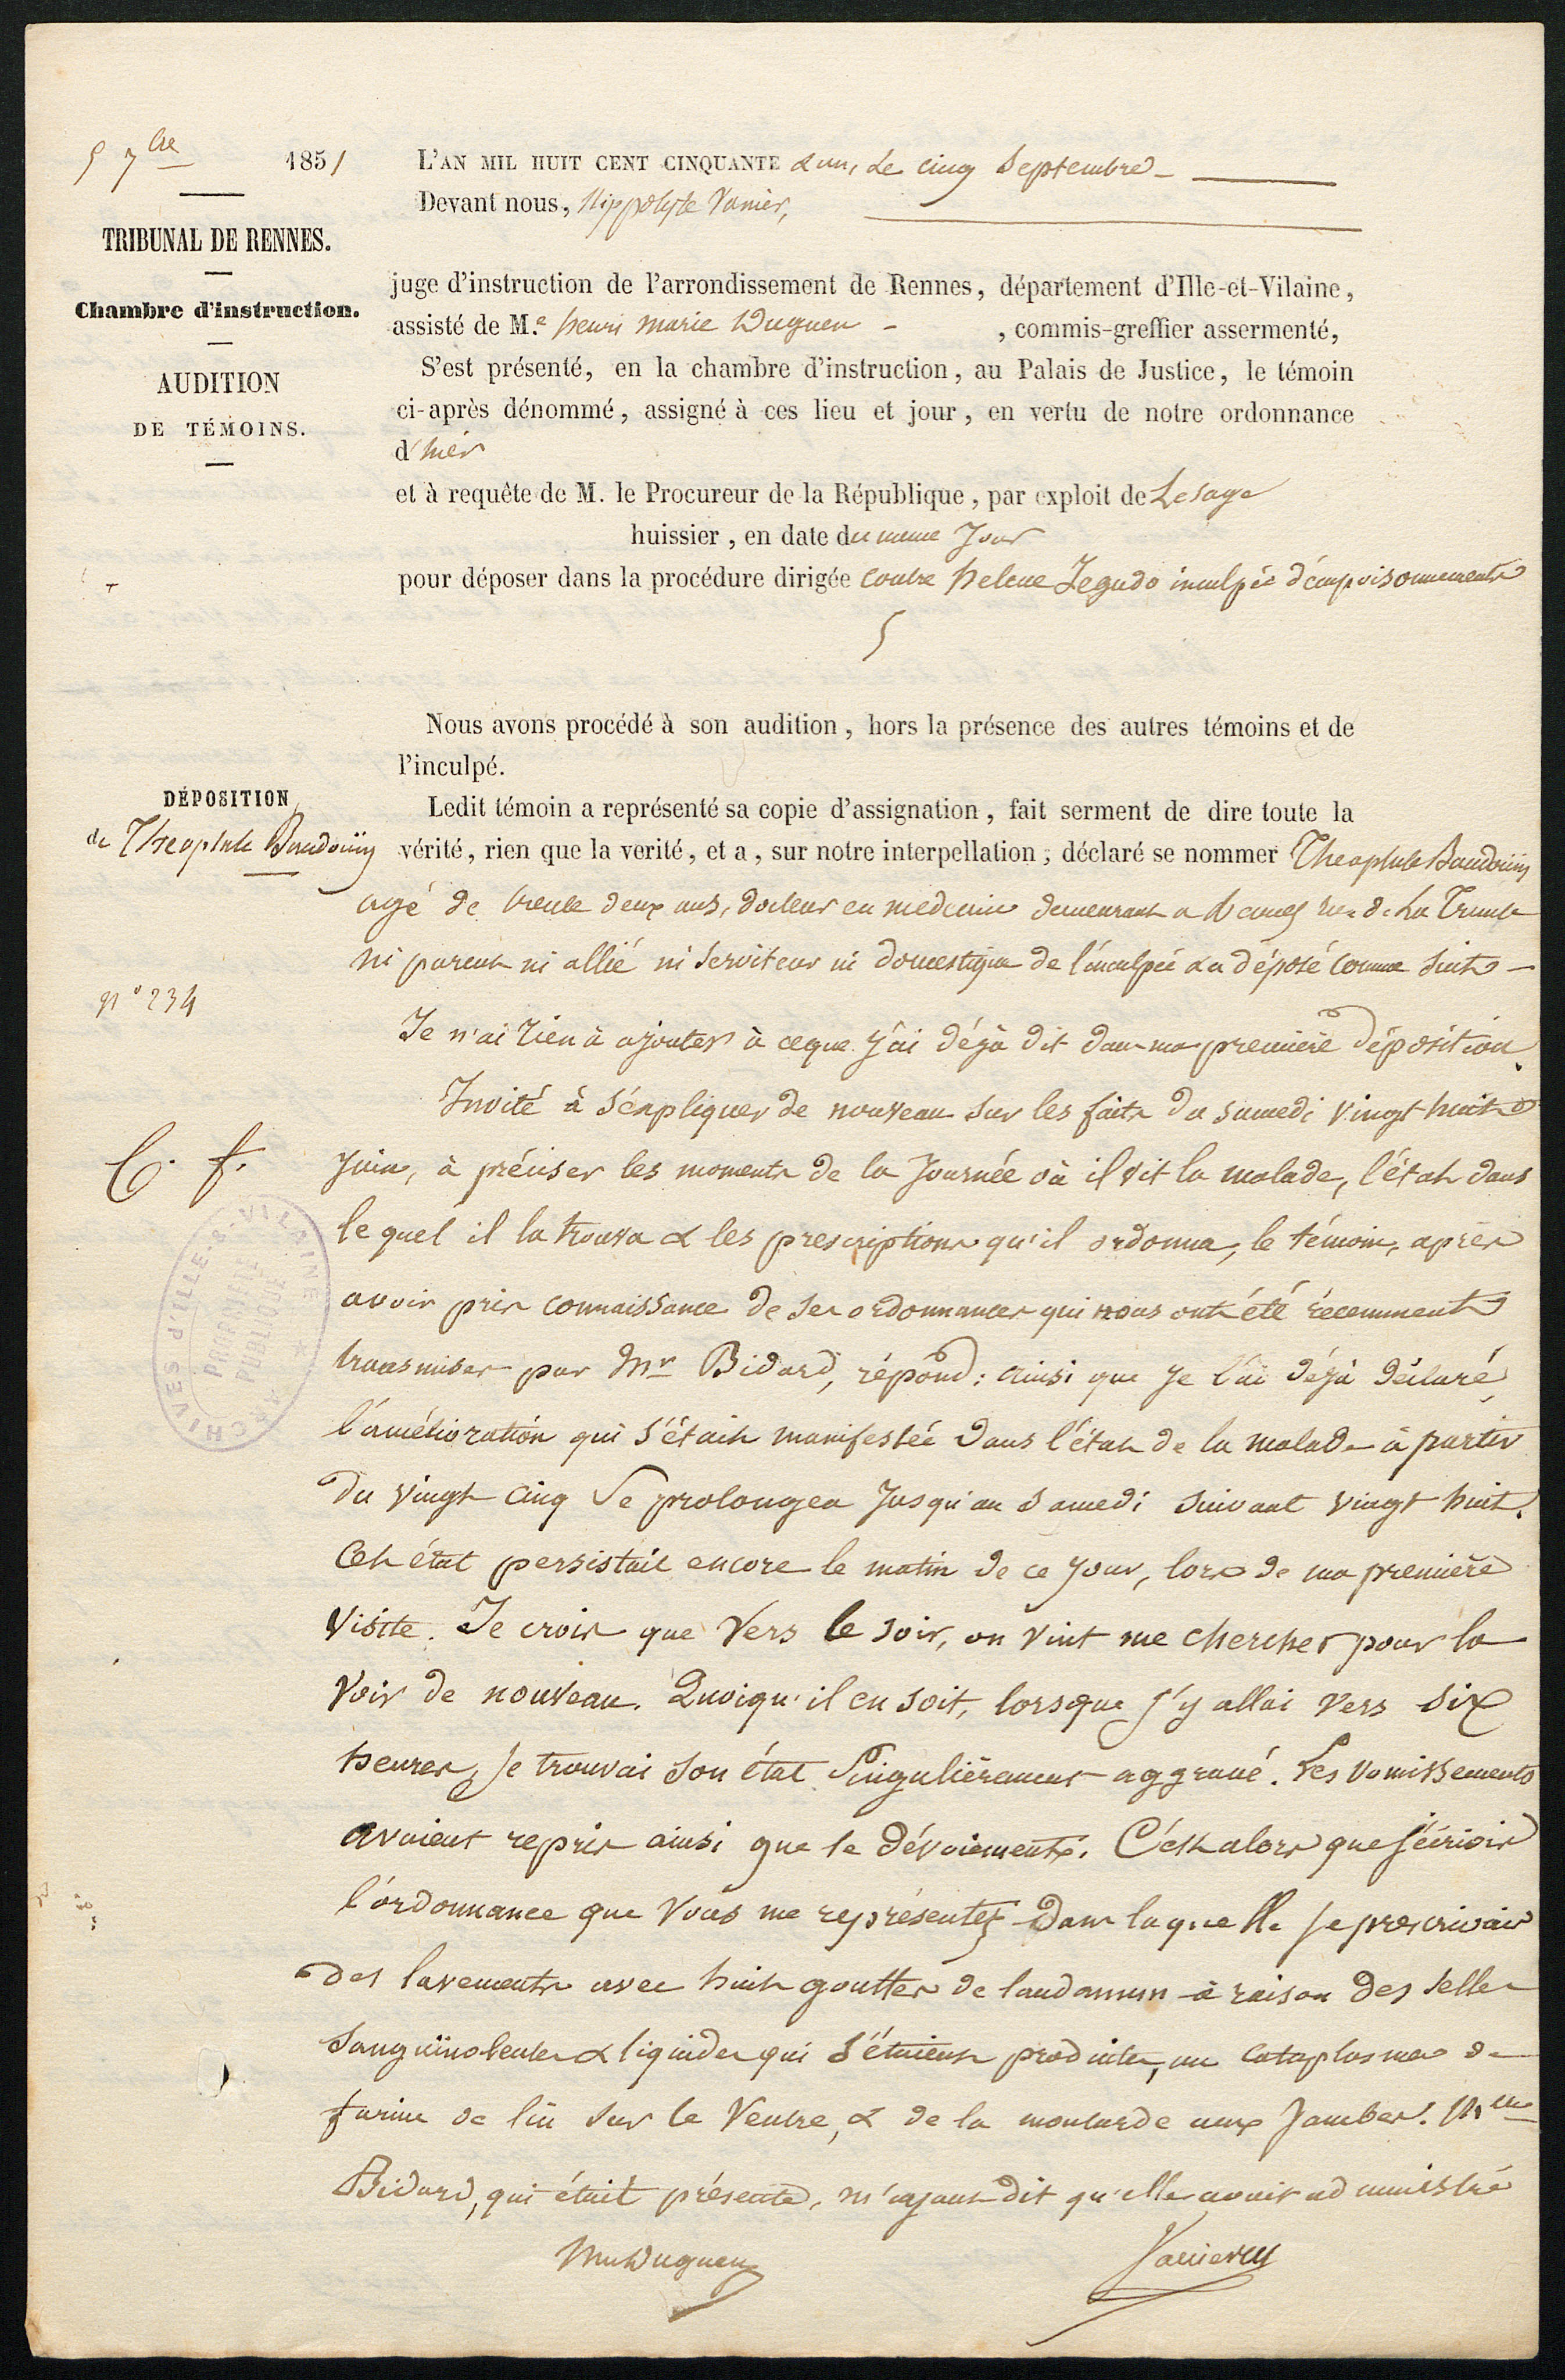 5 7bre 1851
TRIBUNAL DE RENNES.
Chambre d'instruction.
AUDITION
DE TÉMOINS.
L'AN MIL HUIT CENT CINQUANTE & un, Le cinq Septembre
Devant nous, Hippolyte Vanier,
juge d'instruction de l'arrondissement de Rennes, département d'Ille-et-Vilaine,
assisté de M.e henri marie Duguen , commis-greffier assermenté,
S'est présenté, en la chambre d'instruction, au Palais de Justice, le témoin
ci-après dénommé, assigné à ces lieu et jour, en vertu de notre ordonnance
d'hier
et à requête de M. le Procureur de la République, par exploit de Lesage
huissier, en date du meme Jour
pour déposer dans la procédure dirigée contre helene Jegado inculpée d'empoisonnements
Nous avons procédé à son audition, hors la présence des autres témoins et de
l'inculpé.
DÉPOSITION
de Theophile Baudouin
n° 234
C. f.
Ledit témoin a représenté sa copie d'assignation, fait serment de dire toute la
vérité, rien que la verité, et a, sur notre interpellation, déclaré se nommer Theophile Baudouin
agé de trente deux ans, docteur en medecine demeurant a Rennes rue de La
ni parent ni allié ni serviteur ni domestique de l'inculpée & a déposé comme suit
Je n'ai rien à ajouter à ceque j'ai déjà dit dans ma première déposition.
Invité à s'expliquer de nouveau sur les faits du samedi vingt huit
Juin, à préciser les moments de la Journée où il vit la malade, l'état dans
le quel il la trouva & les prescriptions qu'il ordonna, le témoin, après
avoir pris connaissance de ses ordonnances qui nous ont été récemment
transmises par Mr Bidard, répond: ainsi que je l'ai déjà déclaré,
l'amélioration qui s'était manifestée dans l'état de la malade à partir
du vingt cinq se prolongea Jusqu'au Samedi suivant vingt huit.
Cet état persistait encore le matin de ce jour, lors de ma première
visite. Je crois que vers le soir, on vint me chercher pour la
voir de nouveau. Quoiqu'il en soit, lorsque j'y allai vers six
heures, je trouvai son état singulièrement aggravé. Les vomissements
avaient repris ainsi que le dévoiement. C'est alors que j'écrivis
l'ordonnance que vous me représentez dans laquelle je prescrivais
des lavements avec huit gouttes de laudanum à raison des selles
sanguinolentes & liquides qui s'étaient produites, un cataplasme de
farine de lin sur le ventre, & de la moutarde aux jambes. Mme
Bidard, qui était présente, m'ayant dit qu'elle avait administré
Duguen
Vanier
ARCHIVES d'ILLE-&-VILAINE
PROPRIÉTÉ
PUBLIQUE